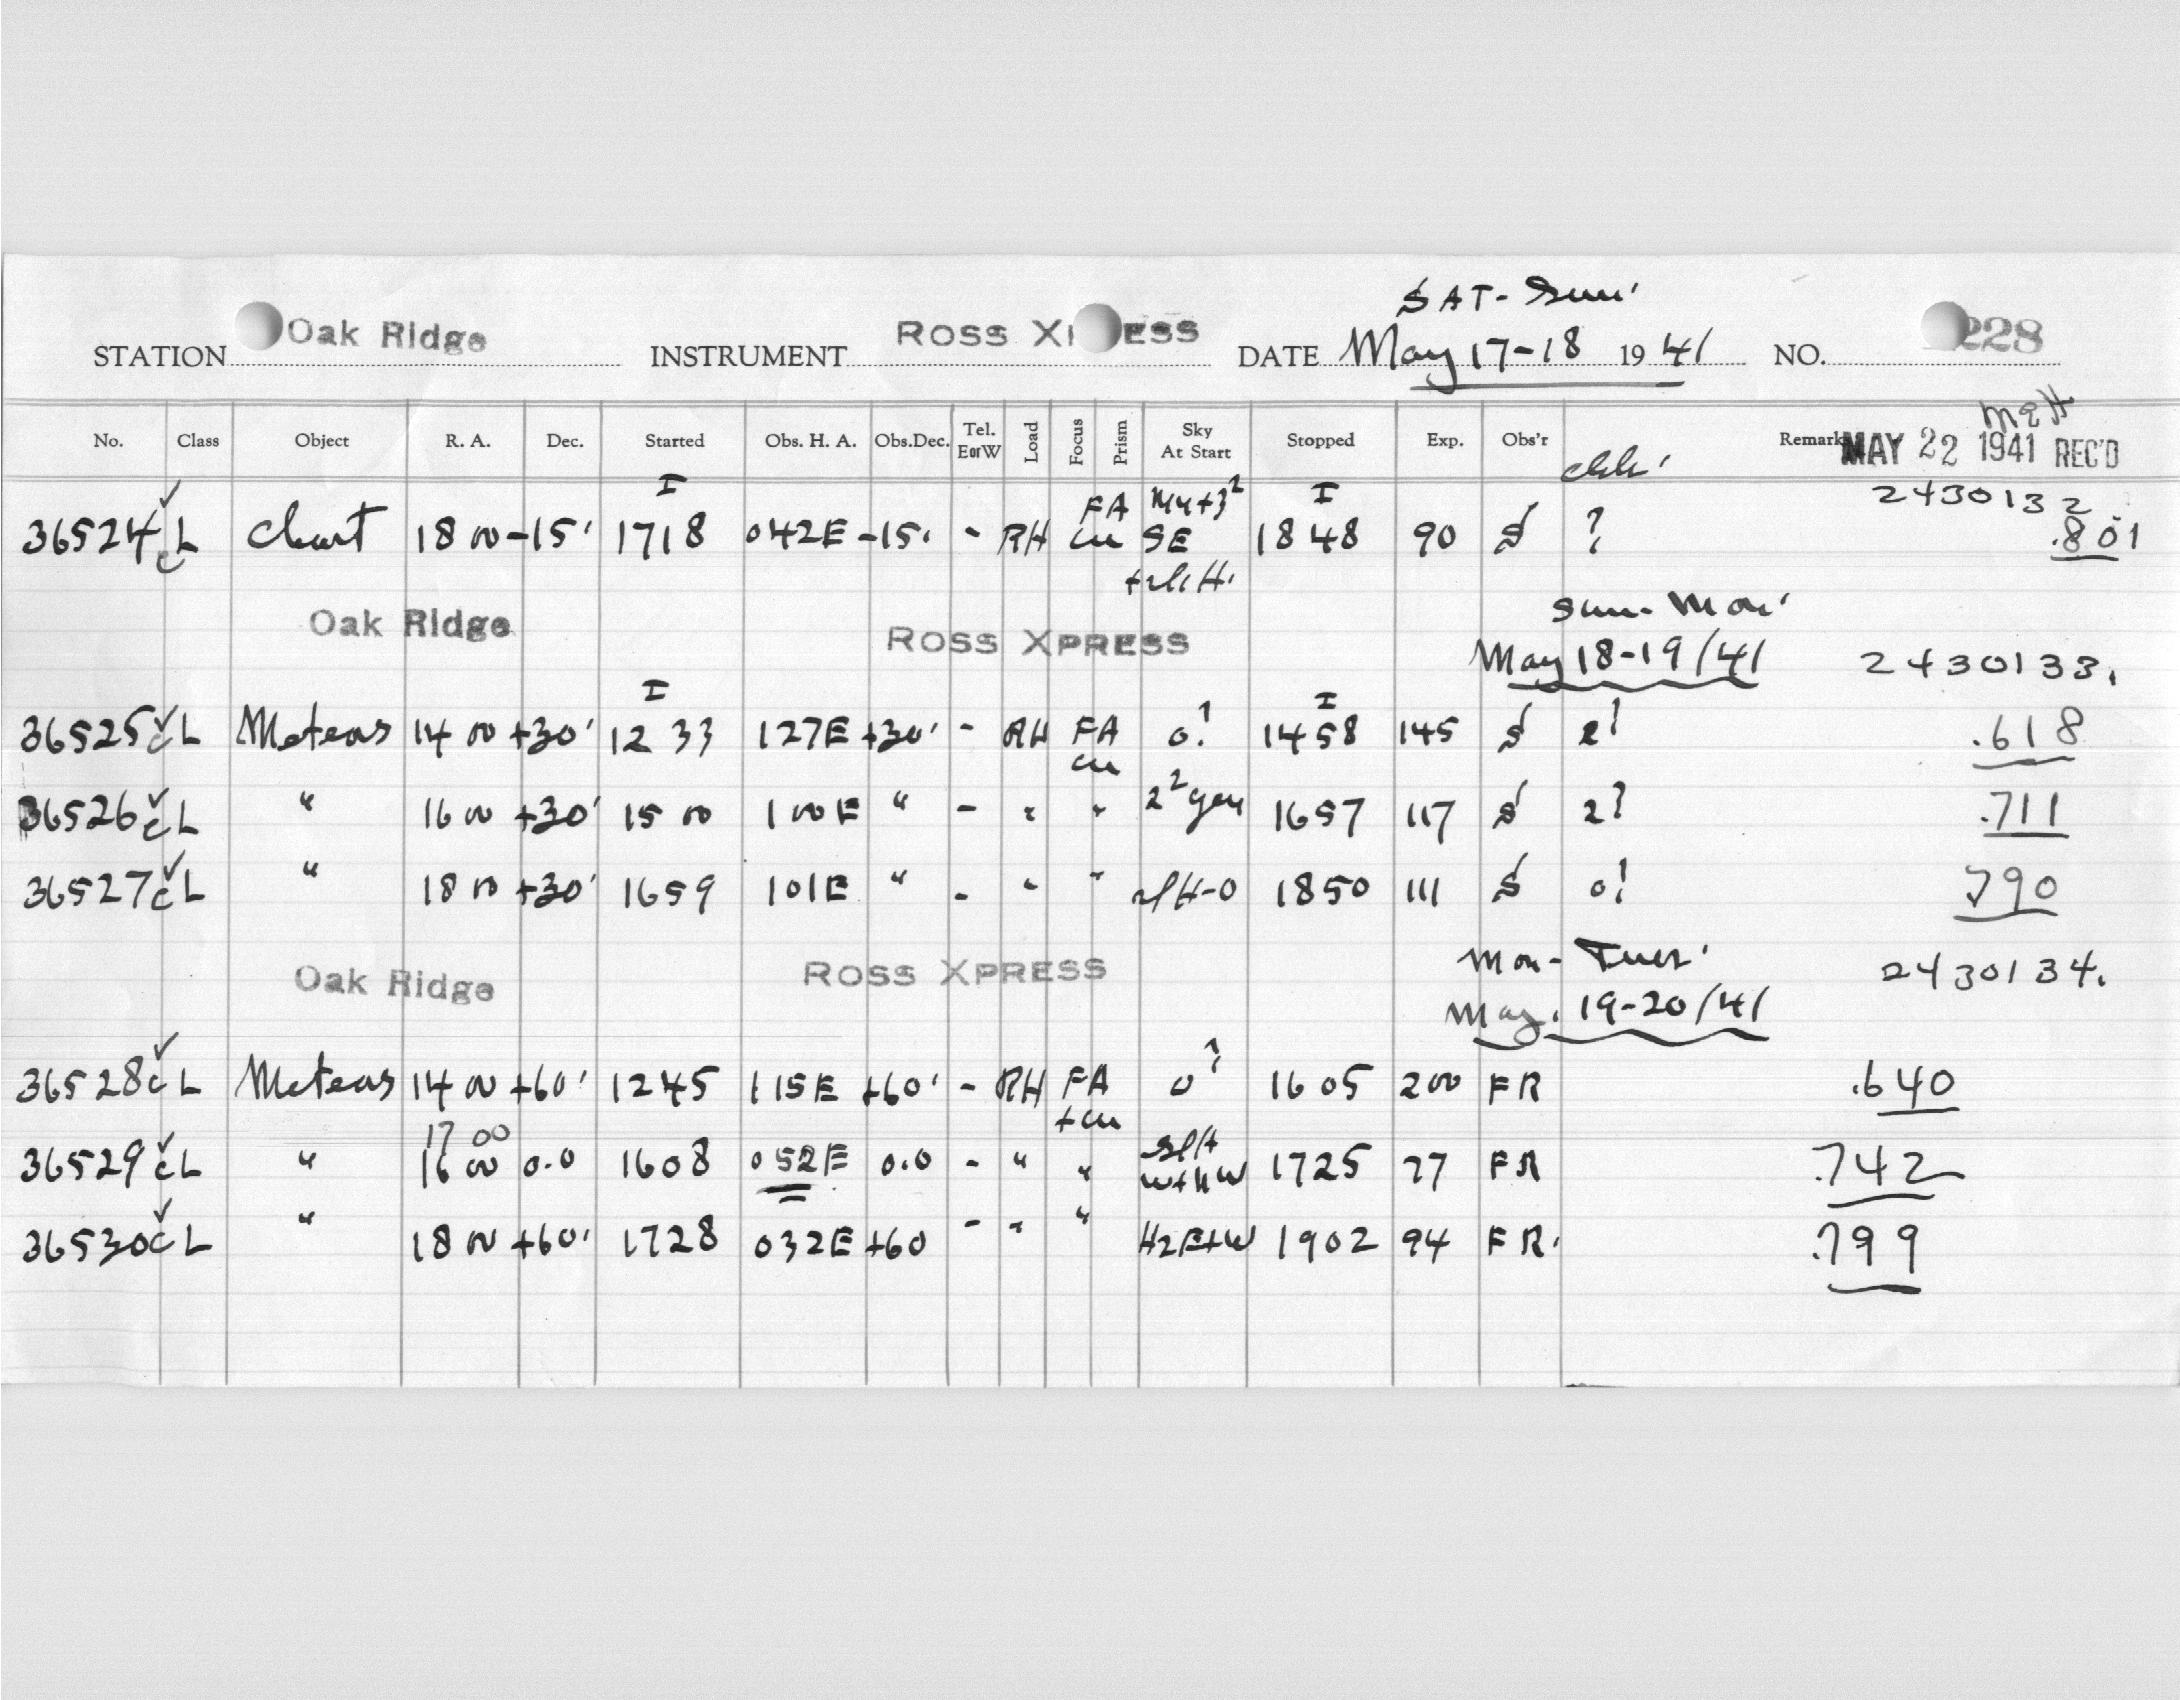 SAT- Sun'
STATION Oak Ridge INSTRUMENT ROSS X ESS DATE May 17-18 1941 NO. 228
No. Class Object R. A. Dec. Started Obs. H. A. Obs.Dec. Tel. EorW Load Focus Prism Sky At Start Stopped Exp. Obs'r Remark
MAY 22 1941 REC'D
36524 cL Chart 18 00 -15' I 1718 042E -15. - RH FA SE I 1848 90 S ? 2430132 .801
Oak Ridge ROSS XPRESS Sun- Mon' May 18-19/41 2430133.
36525 cL Meteors 14 00 +30' I 12 33 127E +30' - RH FA 0? I 1458 145 S 2? .618
36526 cL " 16 00 +30' 15 00 100E " - " " 2² gen 1657 117 S 2? .711
36527 cL " 18 00 +30' 1659 101E " - " " slH-0 1850 111 S 0? .790
Oak Ridge ROSS XPRESS Mon- Tues' May. 19-20/41 2430134.
36528 cL Meteors 14 00 +60' 1245 115E +60' - RH FA 0? 1605 200 FR .640
17 00
36529 cL " 16 00 0.0 1608 052E 0.0 - " " slH 1725 77 FR .742
36530 cL " 18 00 +60' 1728 032E +60 - " " H2E+W 1902 94 FR. .799